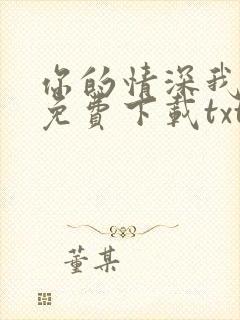 你的情深我
免費下載txt
董某